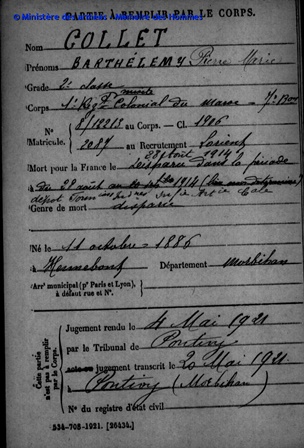 © Ministère de la défense - Mémoire des Hommes
PARTIE À REMPLIR PAR LE CORPS.
Nom COLLET
Prénoms BARTHÉLEMY Pierre Marie
Grade 2e classe
Corps 1er Rgt mixte Colonial du Maroc - 7e Bon
N° 8/12213 au Corps. - Cl. 1906
Matricule. 2087 au Recrutement Lorient
28 août 1914
Mort pour la France le disparu dans la période
du 28 août au 1914
Genre de mort disparu
Né le 11 octobre 1886
à Hennebont Département Morbihan
Arrt municipal (pr Paris et Lyon),
à défaut rue et N°.
Cette partie
n'est pas à remplir
par le Corps.
Jugement rendu le 4 Mai 1921
par le Tribunal de Pontivy
jugement transcrit le 20 Mai 1921
à Pontivy (Morbihan)
N° du registre d'état civil
534-708-1921. [26434.]